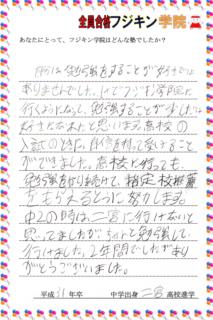 全員合格フジキン学院
あなたにとって、フジキン学院はどんな塾でしたか？
私は勉強をすることが好きでは
ありませんでした。でもフジキン学院に
行くようになって、勉強することが少しだけ
好きになったと思います。高校の
入試の時に、自信を持って受けること
ができました。高校に行っても、
勉強を続けて、指定校推薦
をもらえるように努力します。
中2の時は二宮に行けないと
思ってましたが、ちゃんと勉強して
行けました。2年間でしたがあり
がとうございました。
平成 31 年卒 中学出身 二宮 高校進学